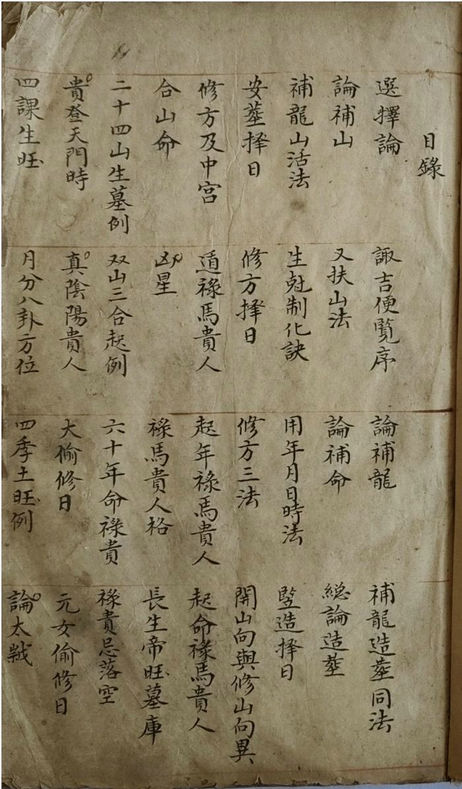 目錄
選擇論 諏吉便覧序 論補龍 補龍造葬同法
論補山 又扶山法 論補命 総論造葬
補龍山活法 生尅制化訣 用年月日時法 竪造择日
安葬择日 修方择日 修方三法 開山向與修山向異
修方及中宮 遁祿馬貴人 起年祿馬貴人 起命祿馬貴人
合山命 凶星 祿馬貴人格 長生帝旺墓庫
二十四山生墓例 双山三合起例 六十年命祿貴 祿貴忌落空
貴登天門時 真陰陽貴人 大偷修日 元女偷修日
四課生旺 月分八卦方位 四季土旺例 論太歲